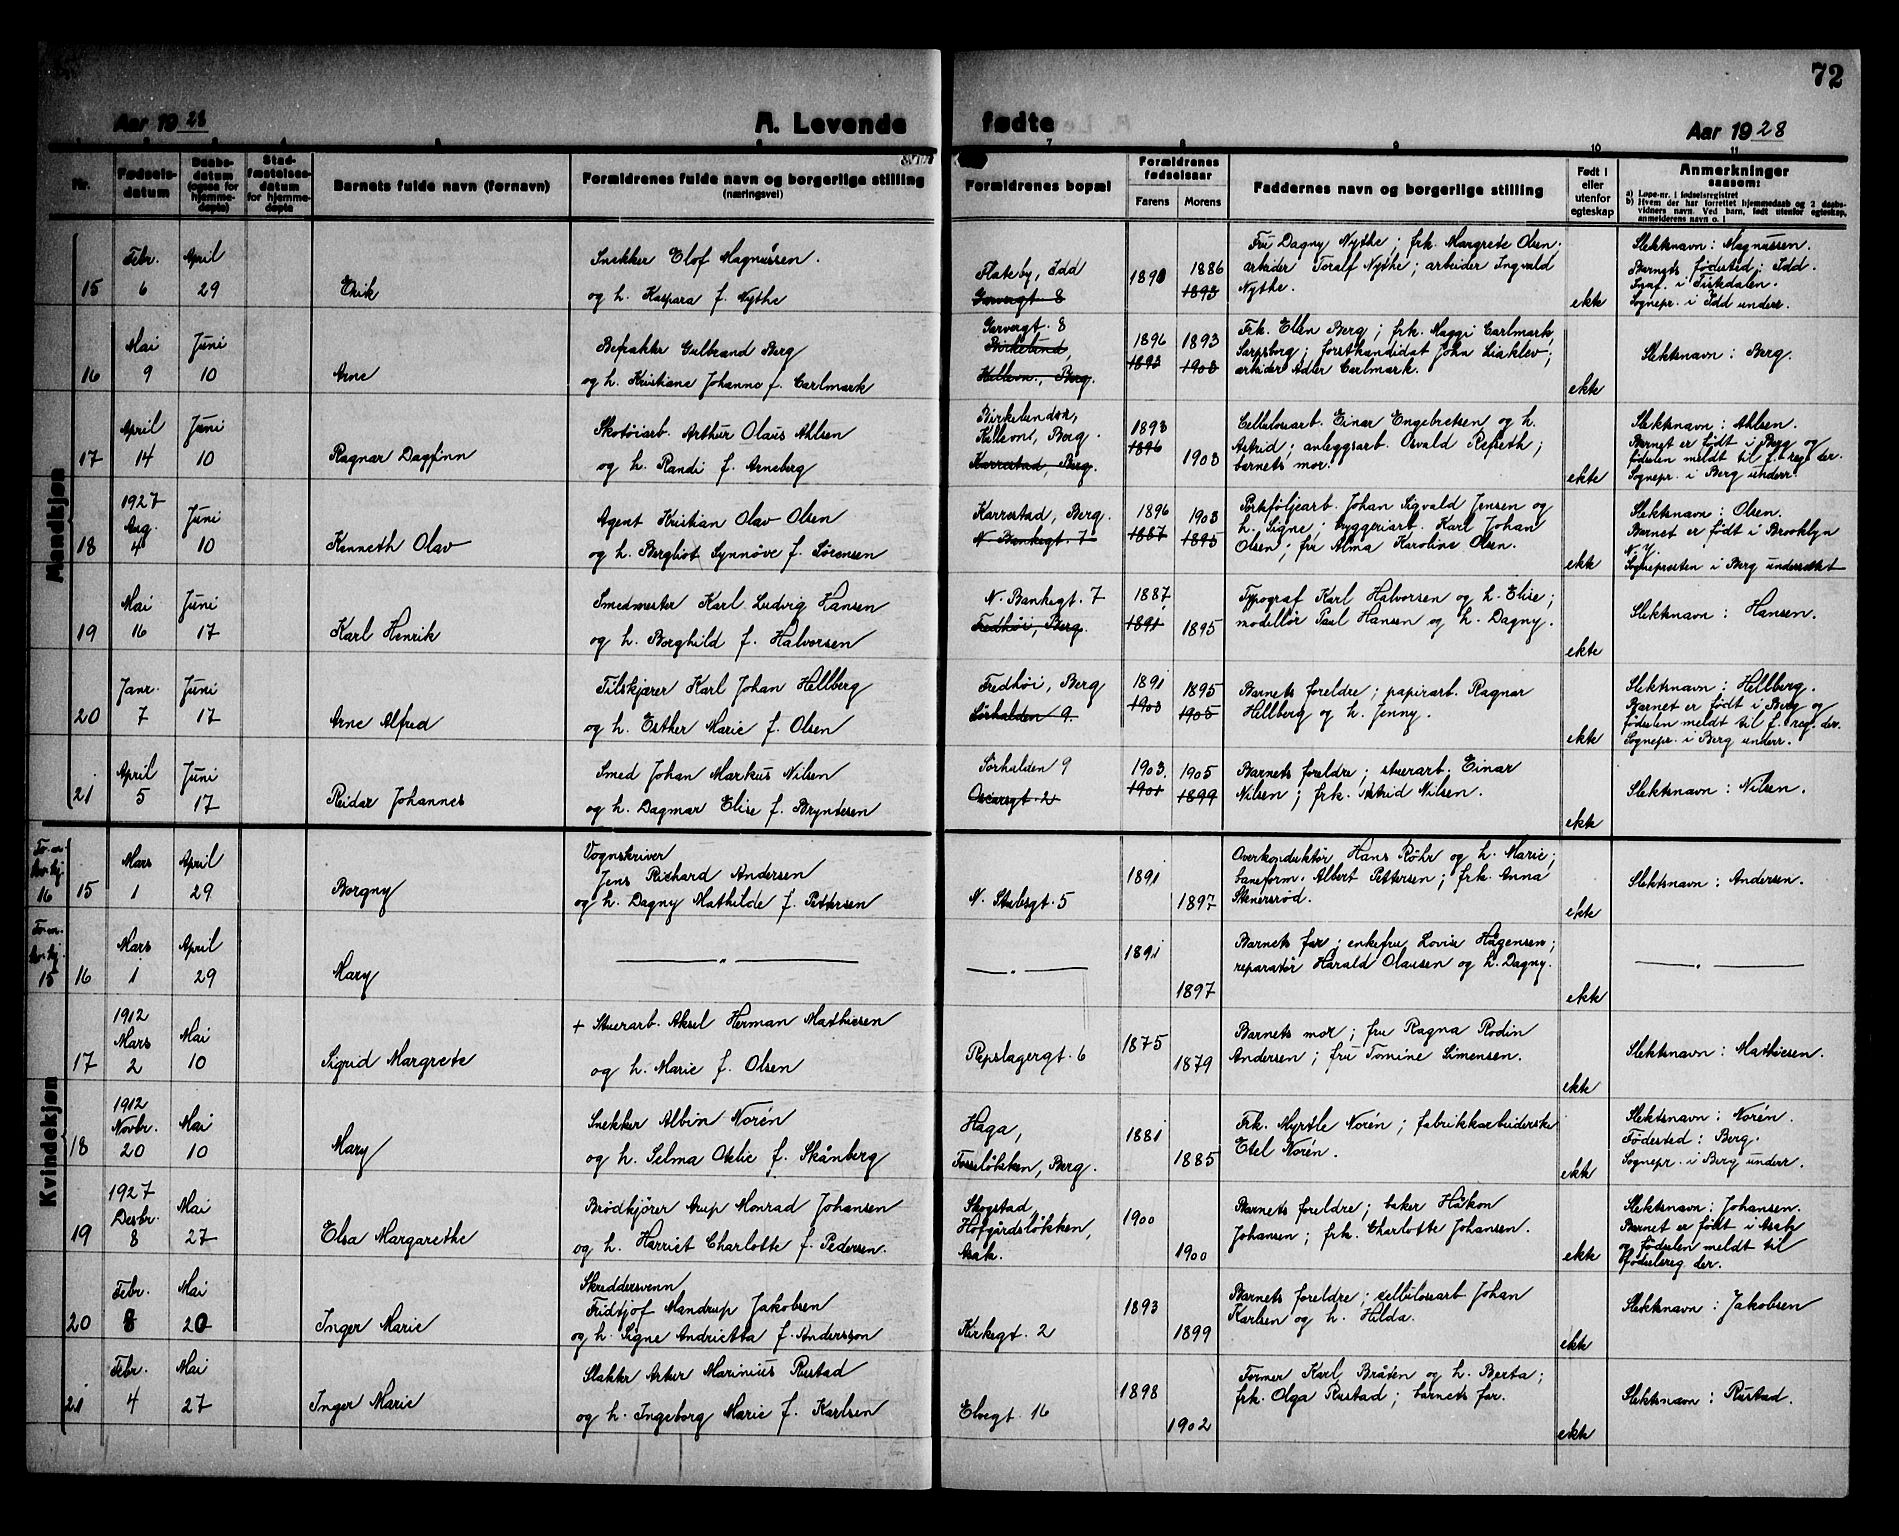 72
Aar 1928
A. Levende
fødte
Aar 1928
Nr.
Fødsels-
datum
Daabs-
datum
(ogsaa for
hjemme-
døpte)
Stad-
fæstelses-
datum
for hjemme-
døpte
Barnets fulde navn (fornavn)
Forældrenes fulde navn og borgerlige stilling
(næringsvei)
Forældrenes bopæl
Forældrenes
fødselsaar
Farens
Morens
Faddernes navn og borgerlige stilling
Født i
eller
utenfor
egteskap
Anmerkninger
saasom:
a) Løpe-nr. i fødselsregistret
b) Hvem der har forrettet hjemmedaab og 2 daabs-
vidners navn. Ved barn, født utenfor egteskap,
anmelderens navn o. l
Mandkjøn
15
Febr.
6
April
29
Erik
Snekker Olof Magnussen.
og h. Kaspara f. Nythe
Flateby, Idd
Garvergt 8
1890
1886
1893
Fru Dagny Nythe; frk. Margrete Olsen.
arbeider Toralf Nythe; arbeider Ingvald
Nythe.
ekte
Slektsnavn: Magnussen.
Barnets fødested: Idd.
Sognepr. i Idd underr.
16
Mai
9
Juni
10
Arne
Befrakter Gulbrand Berg
og h. Kristiane Johanne f. Carlmark
Garvergt. 8
Birkelund,
Berg.
1896
1893
1893
1903
Frk. Ellen Berg; frk. Maggi Carlmark,
Sarpsborg; forstkandidat John Liaklev;
arbeider Adler Carlmark.
ekte
Slektsnavn: Berg.
17
April
14
Juni
10
Ragnar Dagfinn
Skotøiarb. Arthur Olaus Ahlsen
og h. Randi f. Arneberg
Birkelund,
Berg.
Karrestad, Berg.
1893
1896
1903
Cellulosearb. Einar Engebretsen og h.
Astrid; anleggsarb. Osvald Refseth;
barnets mor.
ekte
Slektsnavn: Ahlsen.
Barnet er født i Berg og
fødselen meldt til f. reg. der.
Sognepr. i Berg underr.
18
1927
Aug.
4
Juni
10
Kenneth Olav
Agent Kristian Olav Olsen
og h. Bergliot Synnøve f. Sørensen
Karrestad, Berg.
N. Bankegt. 7
1896
1887
1903
1895
Johan Sigvald Jensen og
h. Signe; byggeriarb. Karl Johan
Olsen; fru Alma Karoline Olsen.
ekte
Slektsnavn: Olsen.
Barnet er født i Brooklyn
N. Y.
Sognepresten i Berg underrettet
19
Mai
16
Juni
17
Karl Henrik
Smedmester Karl Ludvig Hansen
og h. Borghild f. Halvorsen
N. Bankegt. 7
Fredhøi, Berg.
1887
1891
1895
Typograf Karl Halvorsen og h. Elise;
modellør Paul Hansen og h. Dagny.
ekte
Slektsnavn: Hansen.
20
Janr.
7
Juni
17
Arne Alfred
Tilskjærer Karl Johan Hellberg
og h. Esther Marie f. Olsen
Fredhøi, Berg
Sørhalden 9.
1891
1903
1895
1905
Barnets foreldre; papirarb. Ragnar
Hellberg og h. Jenny.
ekte
Slektsnavn: Hellberg.
Barnet er født i Berg og
fødselen meldt til f. reg. der.
Sognepr. i Berg underr.
21
April
5
Juni
17
Reidar Johannes
Smed Johan Markus Nilsen
og h. Dagmar Elise f. Bryntesen
Sørhalden 9
Oscarsgt 2
1903.
1901
1905
1899
Barnets foreldre; stuerarb. Einar
Nilsen; frk. Astrid Nilsen.
ekte
Slektsnavn: Nilsen.
Kvindekjøn
16
15
Mars
1
April
29
Borgny
Vognskriver
Jens Richard Andersen
og h. Dagny Mathilde f. Pettersen
N. Stubsgt. 5
1891
1897
Overkonduktør Hans Röhr og h. Marie;
baneform. Albert Pettersen; frk. Anna
Stenersrød.
ekte
Slektsnavn: Andersen.
15
16
Mars
1
April
29
Mary
— " —
— " —
1891
1897
Barnets far; enkefru Lovise Hågensen;
reparatør Harald Olausen og h. Dagny.
ekte
— " —
17
1912
Mars
2
Mai
10
Sigrid Margrete
+ Stuerarb. Aksel Herman Mathiesen
og h. Marie f. Olsen
Repslagergt. 6
1875
1879
Barnets mor; fru Ragna Rodin
Andersen; fru Tomine Simensen.
ekte
Slektsnavn: Mathiesen.
18
1912
Novbr.
20
Mai
10
Mary
Snekker Albin Norén
og h. Selma Otelie f. Skånberg
Haga,
Fosseløkken, Berg.
1881
1885
Frk. Myrtle Norén; fabrikkarbeiderske
Etel Norén.
ekte
Slektsnavn: Norén.
Fødested: Berg.
Sognepr. i Berg underr.
19
1927
Desbr.
8
Mai
27
Elsa Margarethe
Brødkjører Arup Monrad Johansen
og h. Harriet Charlotte f. Pedersen.
Skogstad,
Hofgårdsløkken,
Asak.
1900
1900
Barnets foreldre; baker Håkon
Johansen; frk. Charlotte Johansen.
ekte
Slektsnavn: Johansen.
Barnet er født i Asak
og fødselen meldt til
fødselsreg der.
20
Febr.
8
Mai
20
Inger Marie
Skreddersvenn
Fridtjof Mandrup Jakobsen
og h. Signe Andrietta f. Andersson
Kirkegt. 2
1893
1899
Barnets foreldre; cellulosearb Johan
Karlsen og h. Hilda.
ekte
Slektsnavn: Jakobsen
21
Febr.
4
Mai
27
Inger Marie
Slakter Artur Marinius Rustad
og h. Ingeborg Marie f. Karlsen
Elvegt. 16
1898
1902
Former Karl Bråten og h. Berta;
frk. Olga Rustad; barnets far.
ekte
Slektsnavn: Rustad.